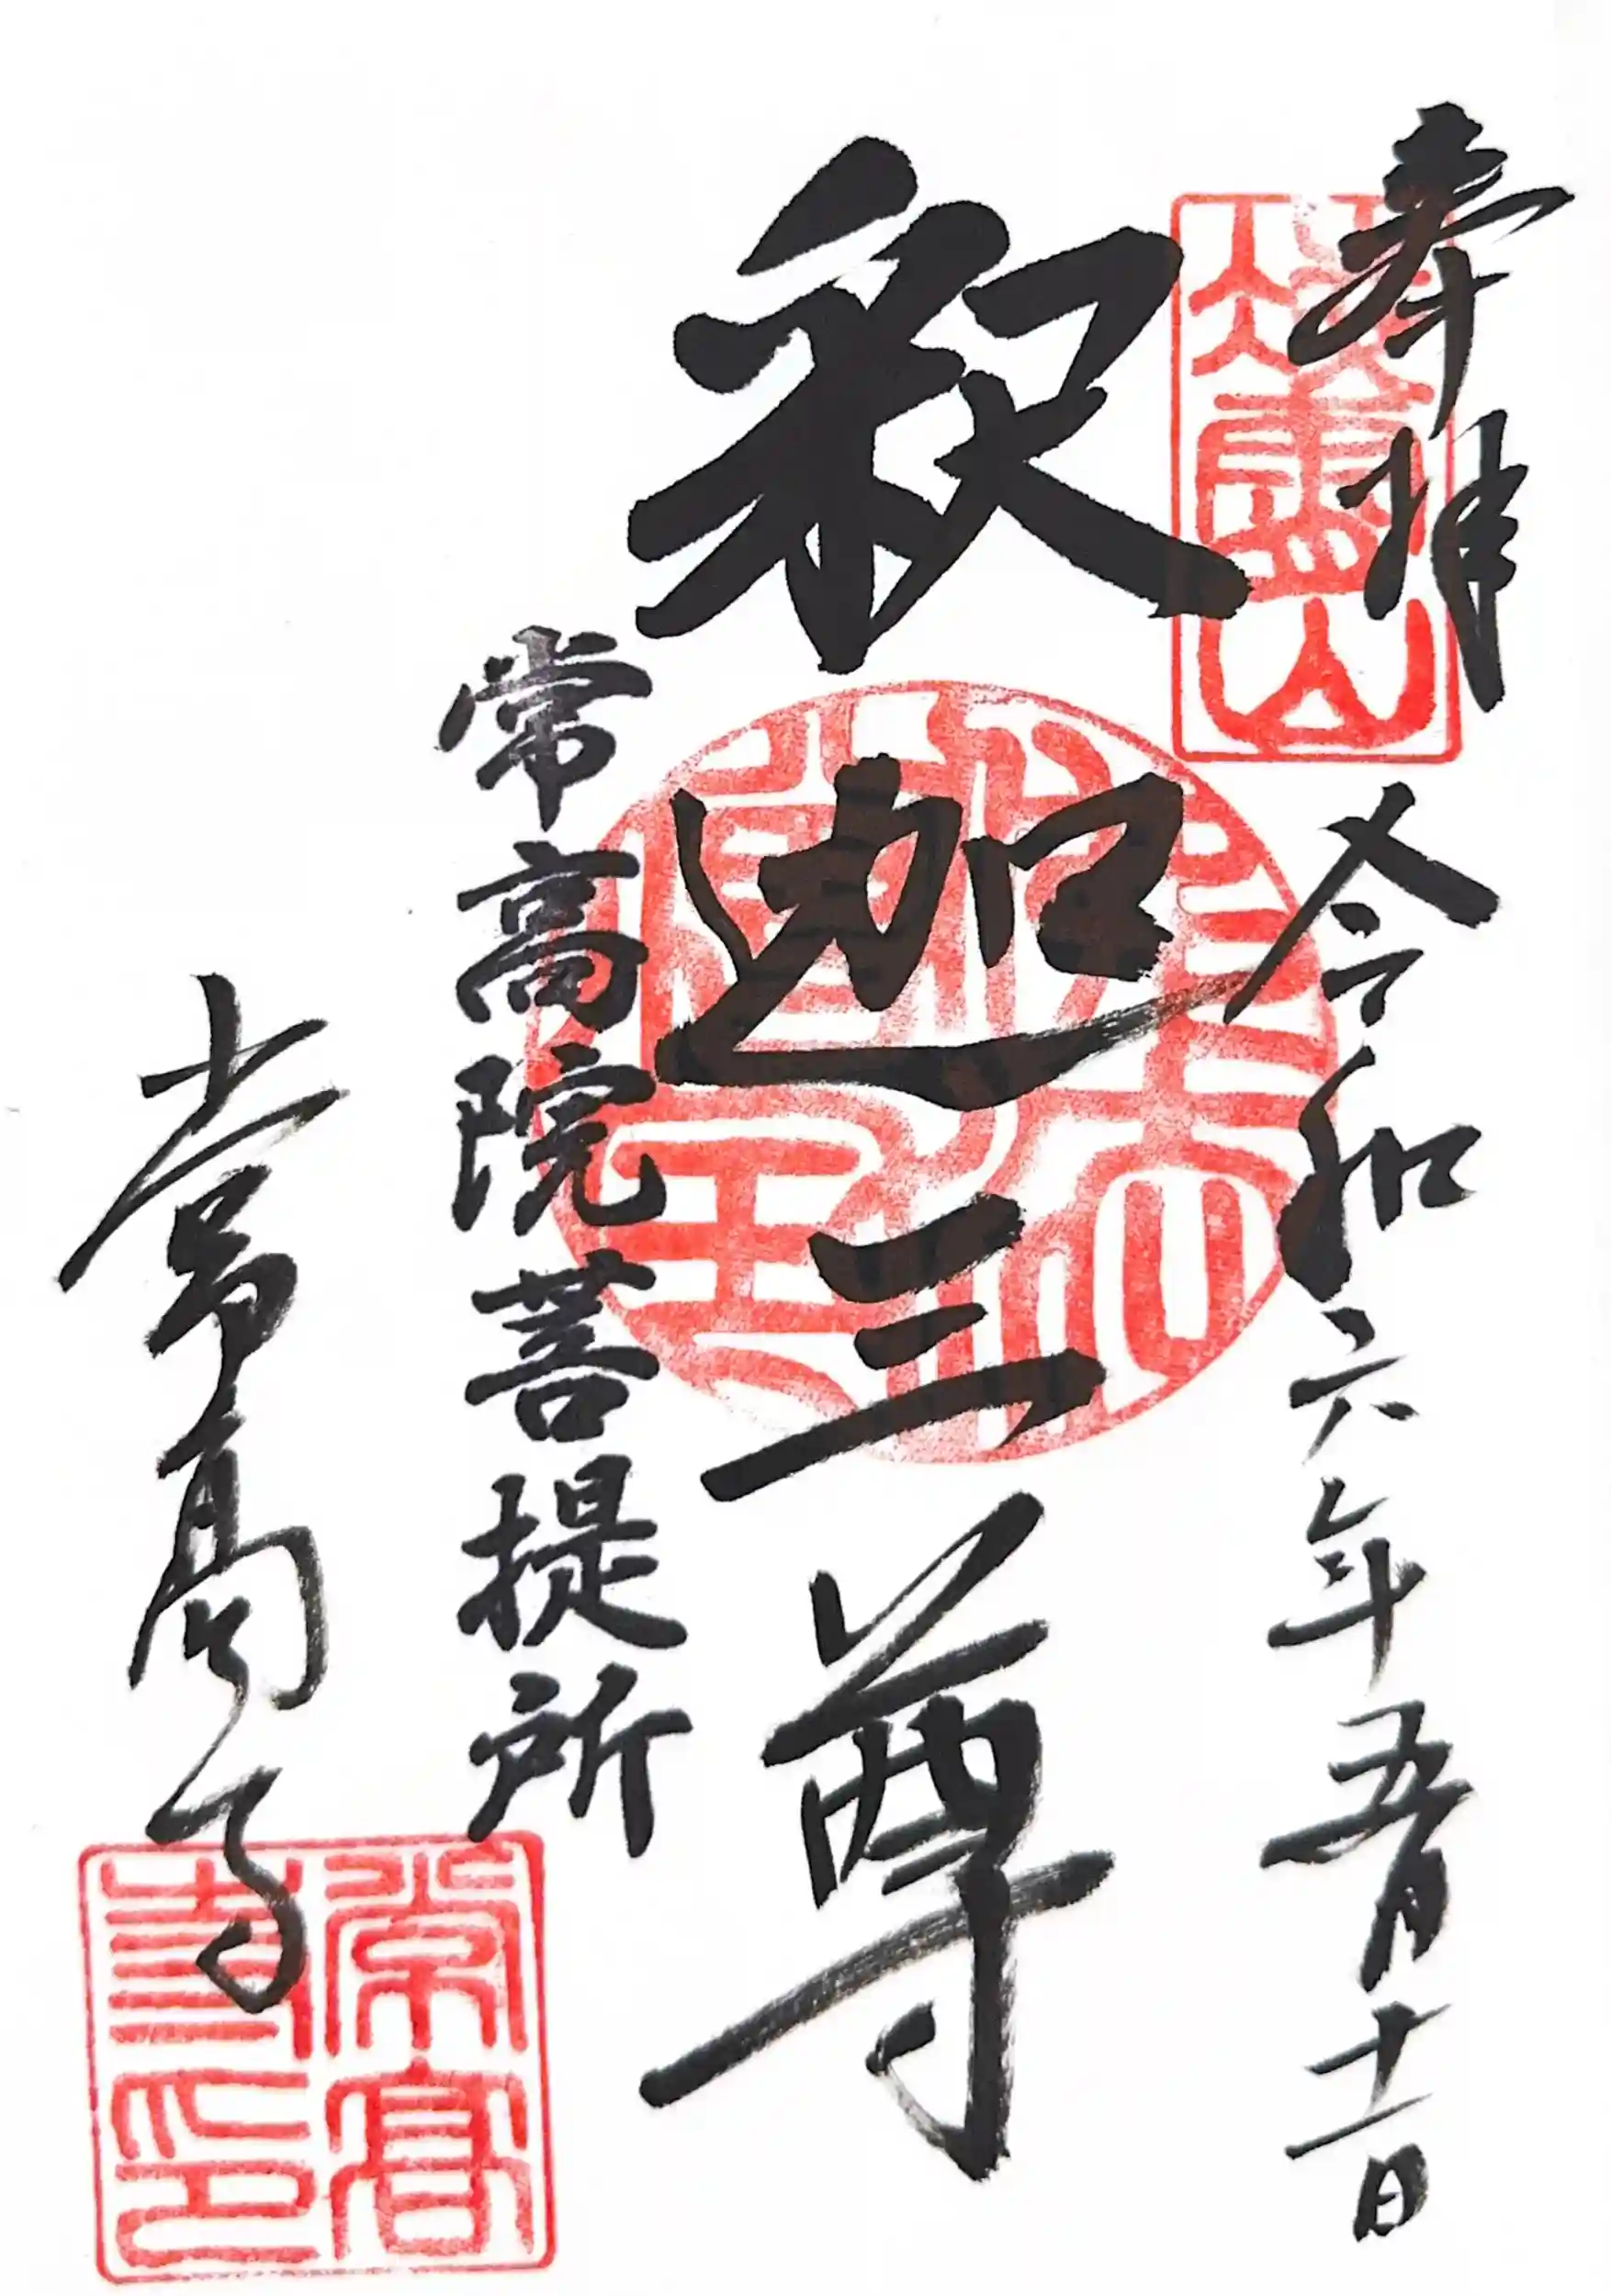 奉拝
令和六年五月十一日
釈迦三尊
常高院菩提所
常高寺
常高寺印